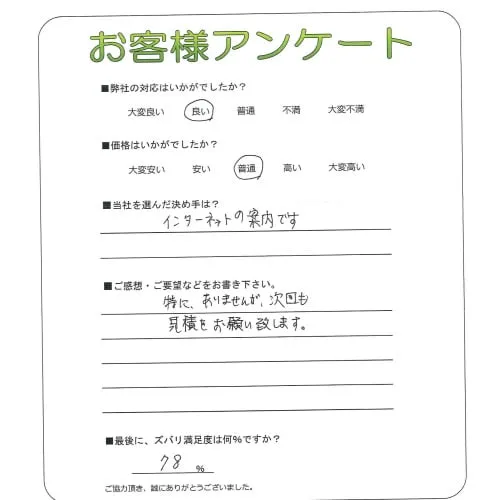 お客様アンケート
■弊社の対応はいかがでしたか?
大変良い 良い 普通 不満 大変不満
■価格はいかがでしたか?
大変安い 安い 普通 高い 大変高い
■当社を選んだ決め手は?
インターネットの案内です
■ご感想・ご要望などをお書き下さい。
特に、ありませんが、次回も
見積をお願い致します。
■最後に、ズバリ満足度は何%ですか?
78 %
ご協力頂き、誠にありがとうございました。